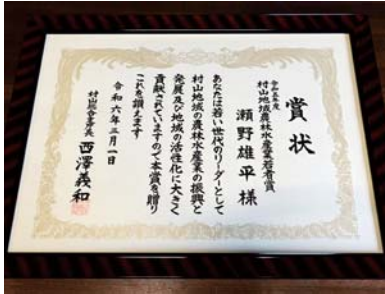 賞状
令和五年度
村山地域農林水産業若者賞
瀬野雄平様
あなたは若い世代のリーダーとして
村山地域の農林水産業の振興と
発展及び地域の活性化に大きく
貢献されていますので本賞を贈り
これを讃えます
令和六年三月一日
村山総合支庁長 西澤義和